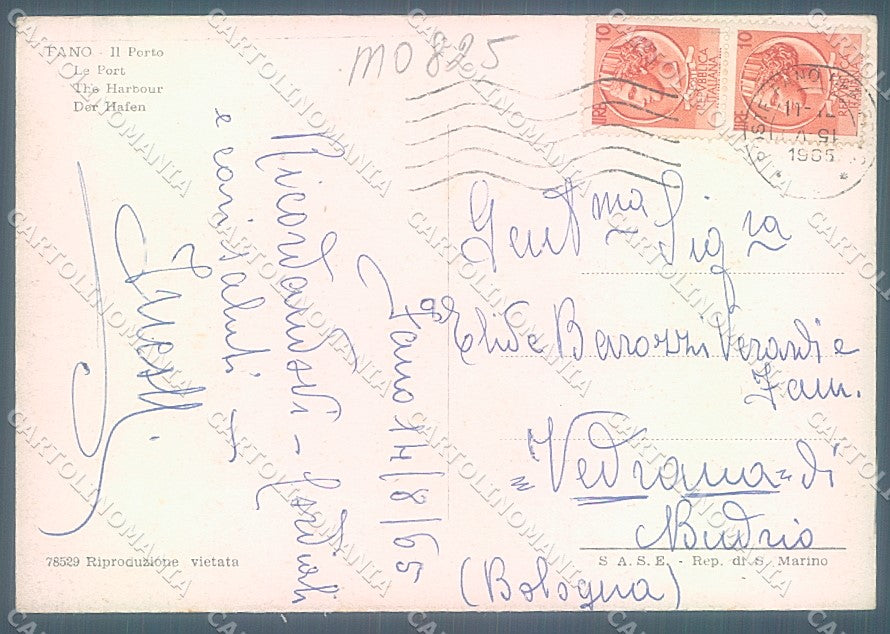 FANO - Il Porto
Le Port
The Harbour
Der Hafen
MO 825
10
LIRE
REPUBBLICA
ITALIANA
10
LIRE
1965
Fano 14/8/65
Ricordandovi - Cordiali
e cari saluti
Gent.ma Sig.ra
Elide Barozzi Verardi e
Fam.
"Vedrana" di
Budrio
(Bologna)
78529 Riproduzione vietata
S A.S.E. - Rep. di S. Marino
CARTOLINOMANIA